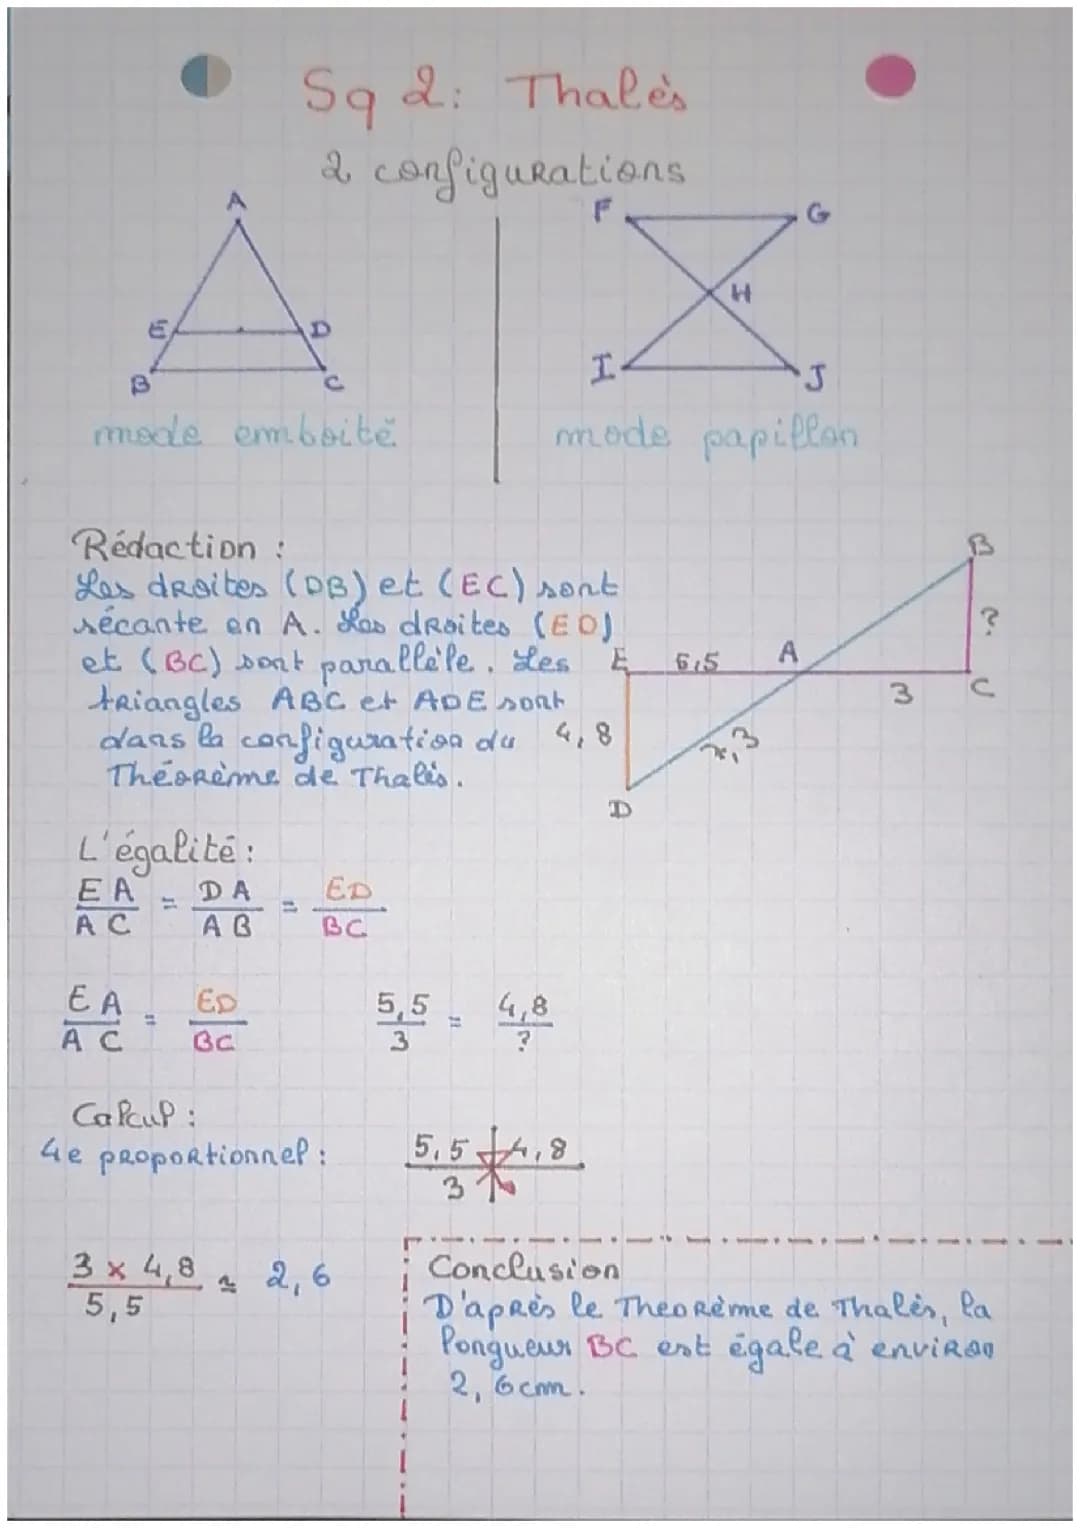 Sq 2: Thalès
2 configurations
A
E
D
B
C
mode emboité
F
G
H
I
J
mode papillon
Rédaction :
Les droites (DB) et (EC) sont
sécante en A. Les droites (ED)
et (BC) sont parallèle. Les
triangles ABC et ADE sont
dans la configuration du
Théorème de Thalès.
B
?
E
6,5
A
3
C
4,8
7,3
D
L'égalité :
EA/AC = DA/AB = ED/BC
EA/AC = ED/BC
5,5/3 = 4,8/?
Calcul :
4e proportionnel :
5,5 4,8
3
3 x 4,8 / 5,5 ≈ 2,6
Conclusion
D'après le Theorème de Thalès, la
longueur BC est égale à environ
2,6cm.